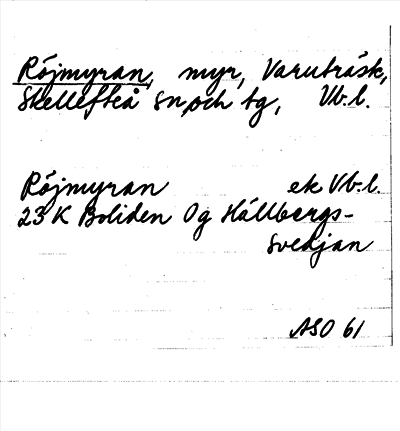 Röjmyran, myr, Varuträsk,
Skellefteå sn och tg, Vb.l.
Röjmyran ek Vb.l.
23 K Boliden 0g Hállbergs-
svedjan
ASO 61